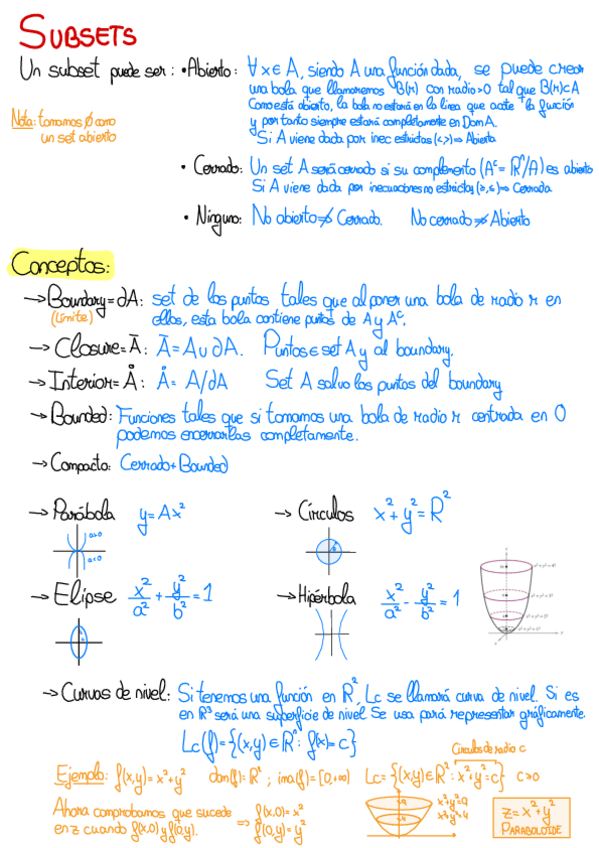 SUBSETS
Un subset puede ser: • Abierto: ∀x∈A, siendo A una función dada, se puede crear
una bola que llamaremos B(r) con radio>0 tal que B(r)⊂A
Como está abierto, la bola no estará en la línea que acote la función
y por tanto siempre estará completamente en Dom A.
Si A viene dada por inec estrictas (<,>) ⇒ Abierta
Nota: tomamos ∅ como
un set abierto
• Cerrado: Un set A será cerrado si su complemento (Aᶜ = ℝⁿ/A) es abierto
Si A viene dada por inecuaciones no estrictas (≥,≤) ⇒ Cerrada
• Ninguno: No abierto ⇏ Cerrado. No cerrado ⇏ Abierto
Conceptos:
→ Boundary = ∂A: set de los puntos tales que al poner una bola de radio r en
(Límite) ellos, esta bola contiene puntos de A y Aᶜ.
→ Closure = Ā: Ā = A∪∂A. Puntos ∈ set A y al boundary.
→ Interior = Å: Å = A/∂A Set A salvo los puntos del boundary
→ Bounded: Funciones tales que si tomamos una bola de radio r centrada en 0
podemos encerrarlas completamente.
→ Compacta: Cerrado + Bounded
→ Parábola y = Ax²
a>0
a<0
→ Círculos x² + y² = R²
→ Elipse x²/a² + y²/b² = 1
→ Hipérbola x²/a² - y²/b² = 1
→ Curvas de nivel: Si tenemos una función en ℝ², Lc se llamará curva de nivel. Si es
en ℝ³ será una superficie de nivel. Se usa para representar gráficamente.
Lc(f) = {(x,y)∈ℝⁿ: f(x) = c}
Círculos de radio c
Ejemplo: f(x,y) = x²+y² dom(f) = ℝ²; ima(f) = [0,+∞) Lc = {(x,y)∈ℝ²: x²+y² = c} c>0
Ahora comprobamos que sucede
en z cuando f(x,0) y f(0,y). ⇒ f(x,0) = x²
f(0,y) = y²
x²+y²=9
x²+y²=4
z = x² + y²
PARABOLOIDE